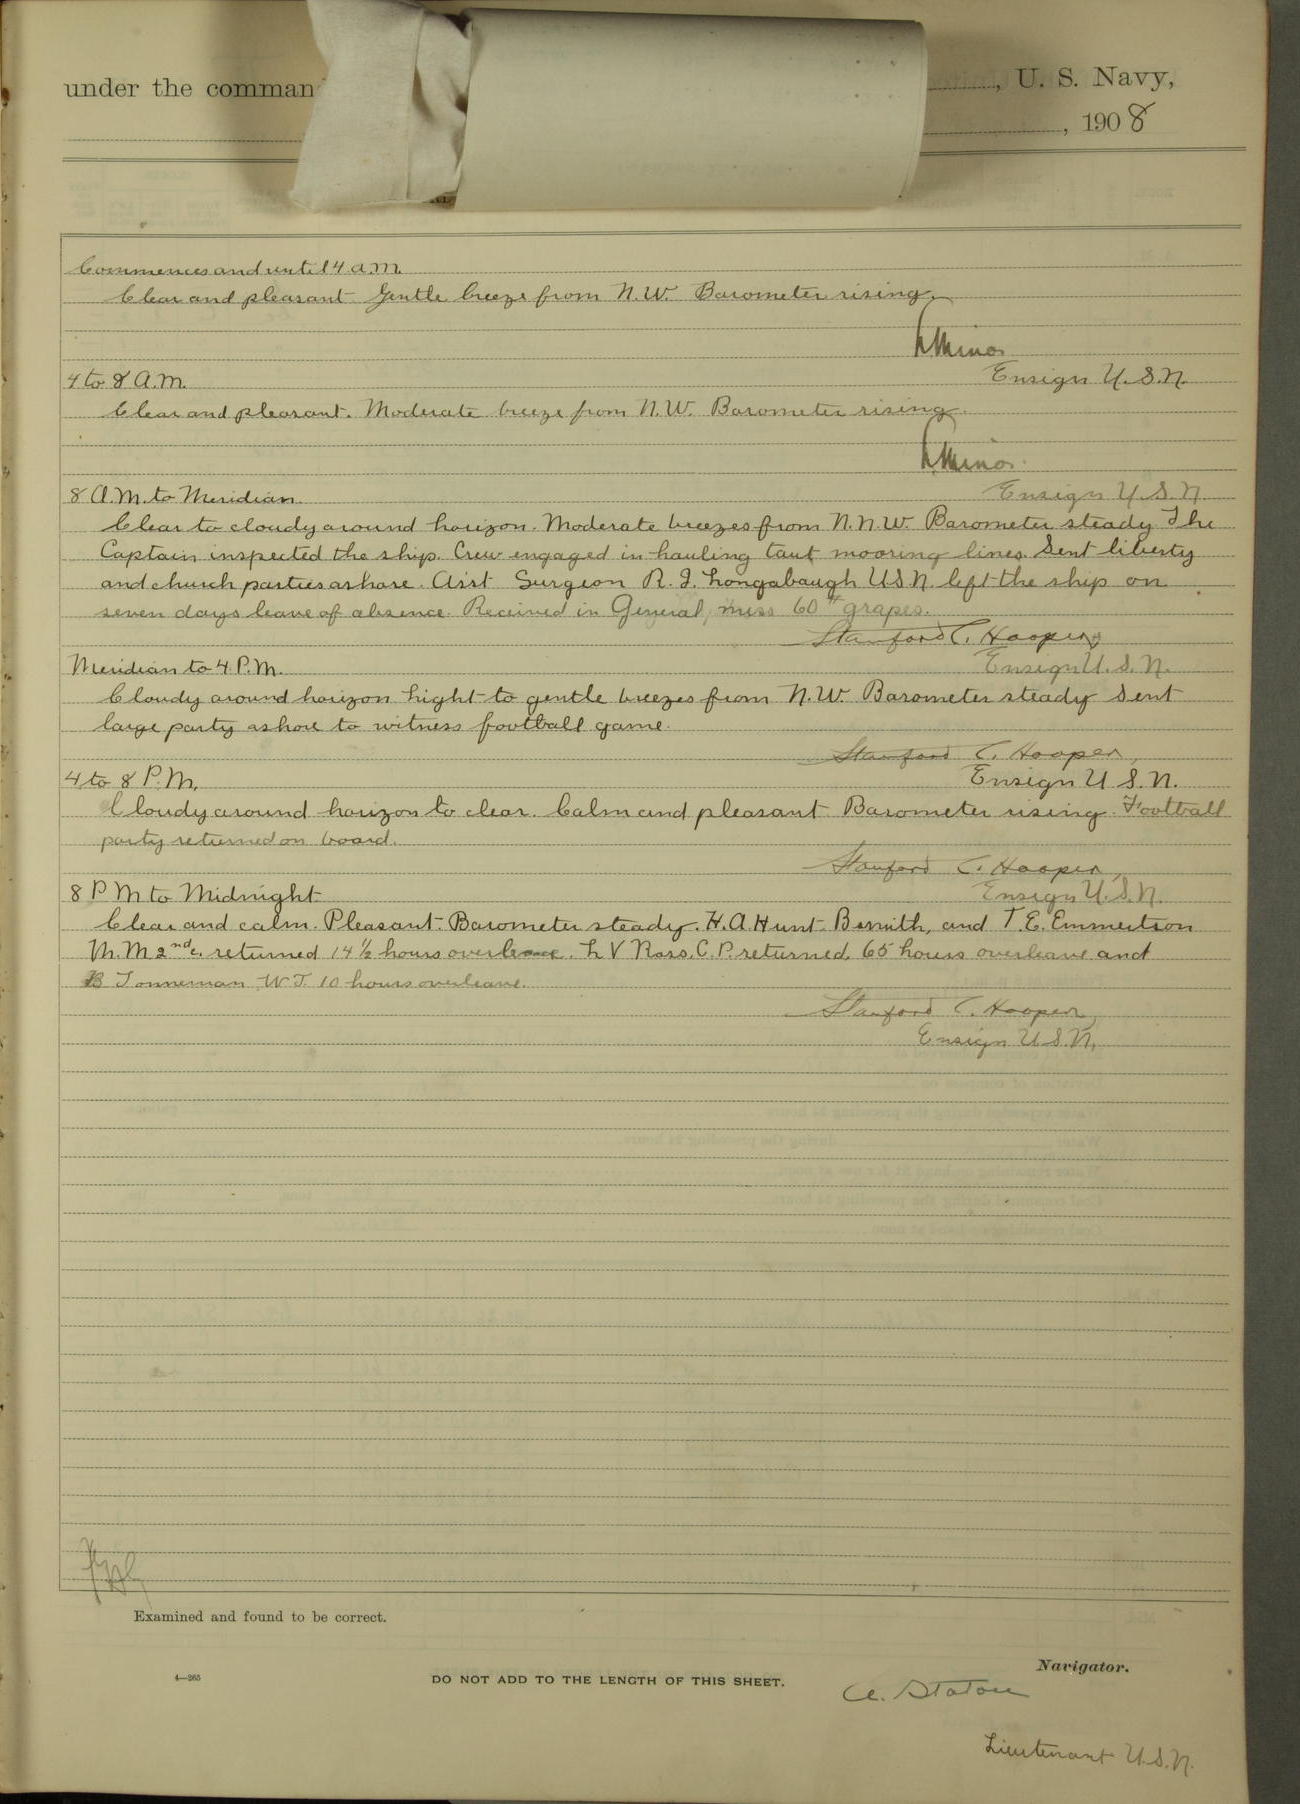 under the comman
, U. S. Navy,
, 1908
Commences and until 4 a.m.
Clear and pleasant Gentle breeze from N.W. Barometer rising.
Minor
Ensign U.S.N.
4 to 8 A.M.
Clear and pleasant. Moderate breeze from N.W. Barometer rising.
Minor
Ensign U.S.N.
8 A.M. to Meridian.
Clear to cloudy around horizon. Moderate breezes from N.N.W. Barometer steady The
Captain inspected the ship. Crew engaged in hauling taut mooring lines. Sent liberty
and church parties ashore. Ass't Surgeon R. I. Longabaugh U.S.N. left the ship on
seven days leave of absence. Received in General mess 60 # grapes.
Stanford C. Hooper,
Ensign U.S.N.
Meridian to 4 P.M.
Cloudy around horizon Light to gentle breezes from N.W. Barometer steady Sent
large party ashore to witness football game.
Stanford C. Hooper,
Ensign U.S.N.
4 to 8 P.M.
Cloudy around horizon to clear. Calm and pleasant Barometer rising. Football
party returned on board.
Stanford C. Hooper,
Ensign U.S.N.
8 P M to Midnight
Clear and calm. Pleasant. Barometer steady. H.A. Hunt Bsmith, and T.E. Emmertson
M.M 2nd c. returned 14 ½ hours overleave. L V Ross, C.P. returned 65 hours overleave and
B Tonneman W.T. 10 hours overleave.
Stanford C. Hooper,
Ensign U.S.N.
Examined and found to be correct.
Navigator.
4—265
DO NOT ADD TO THE LENGTH OF THIS SHEET.
A. Staton
Lieutenant U.S.N.